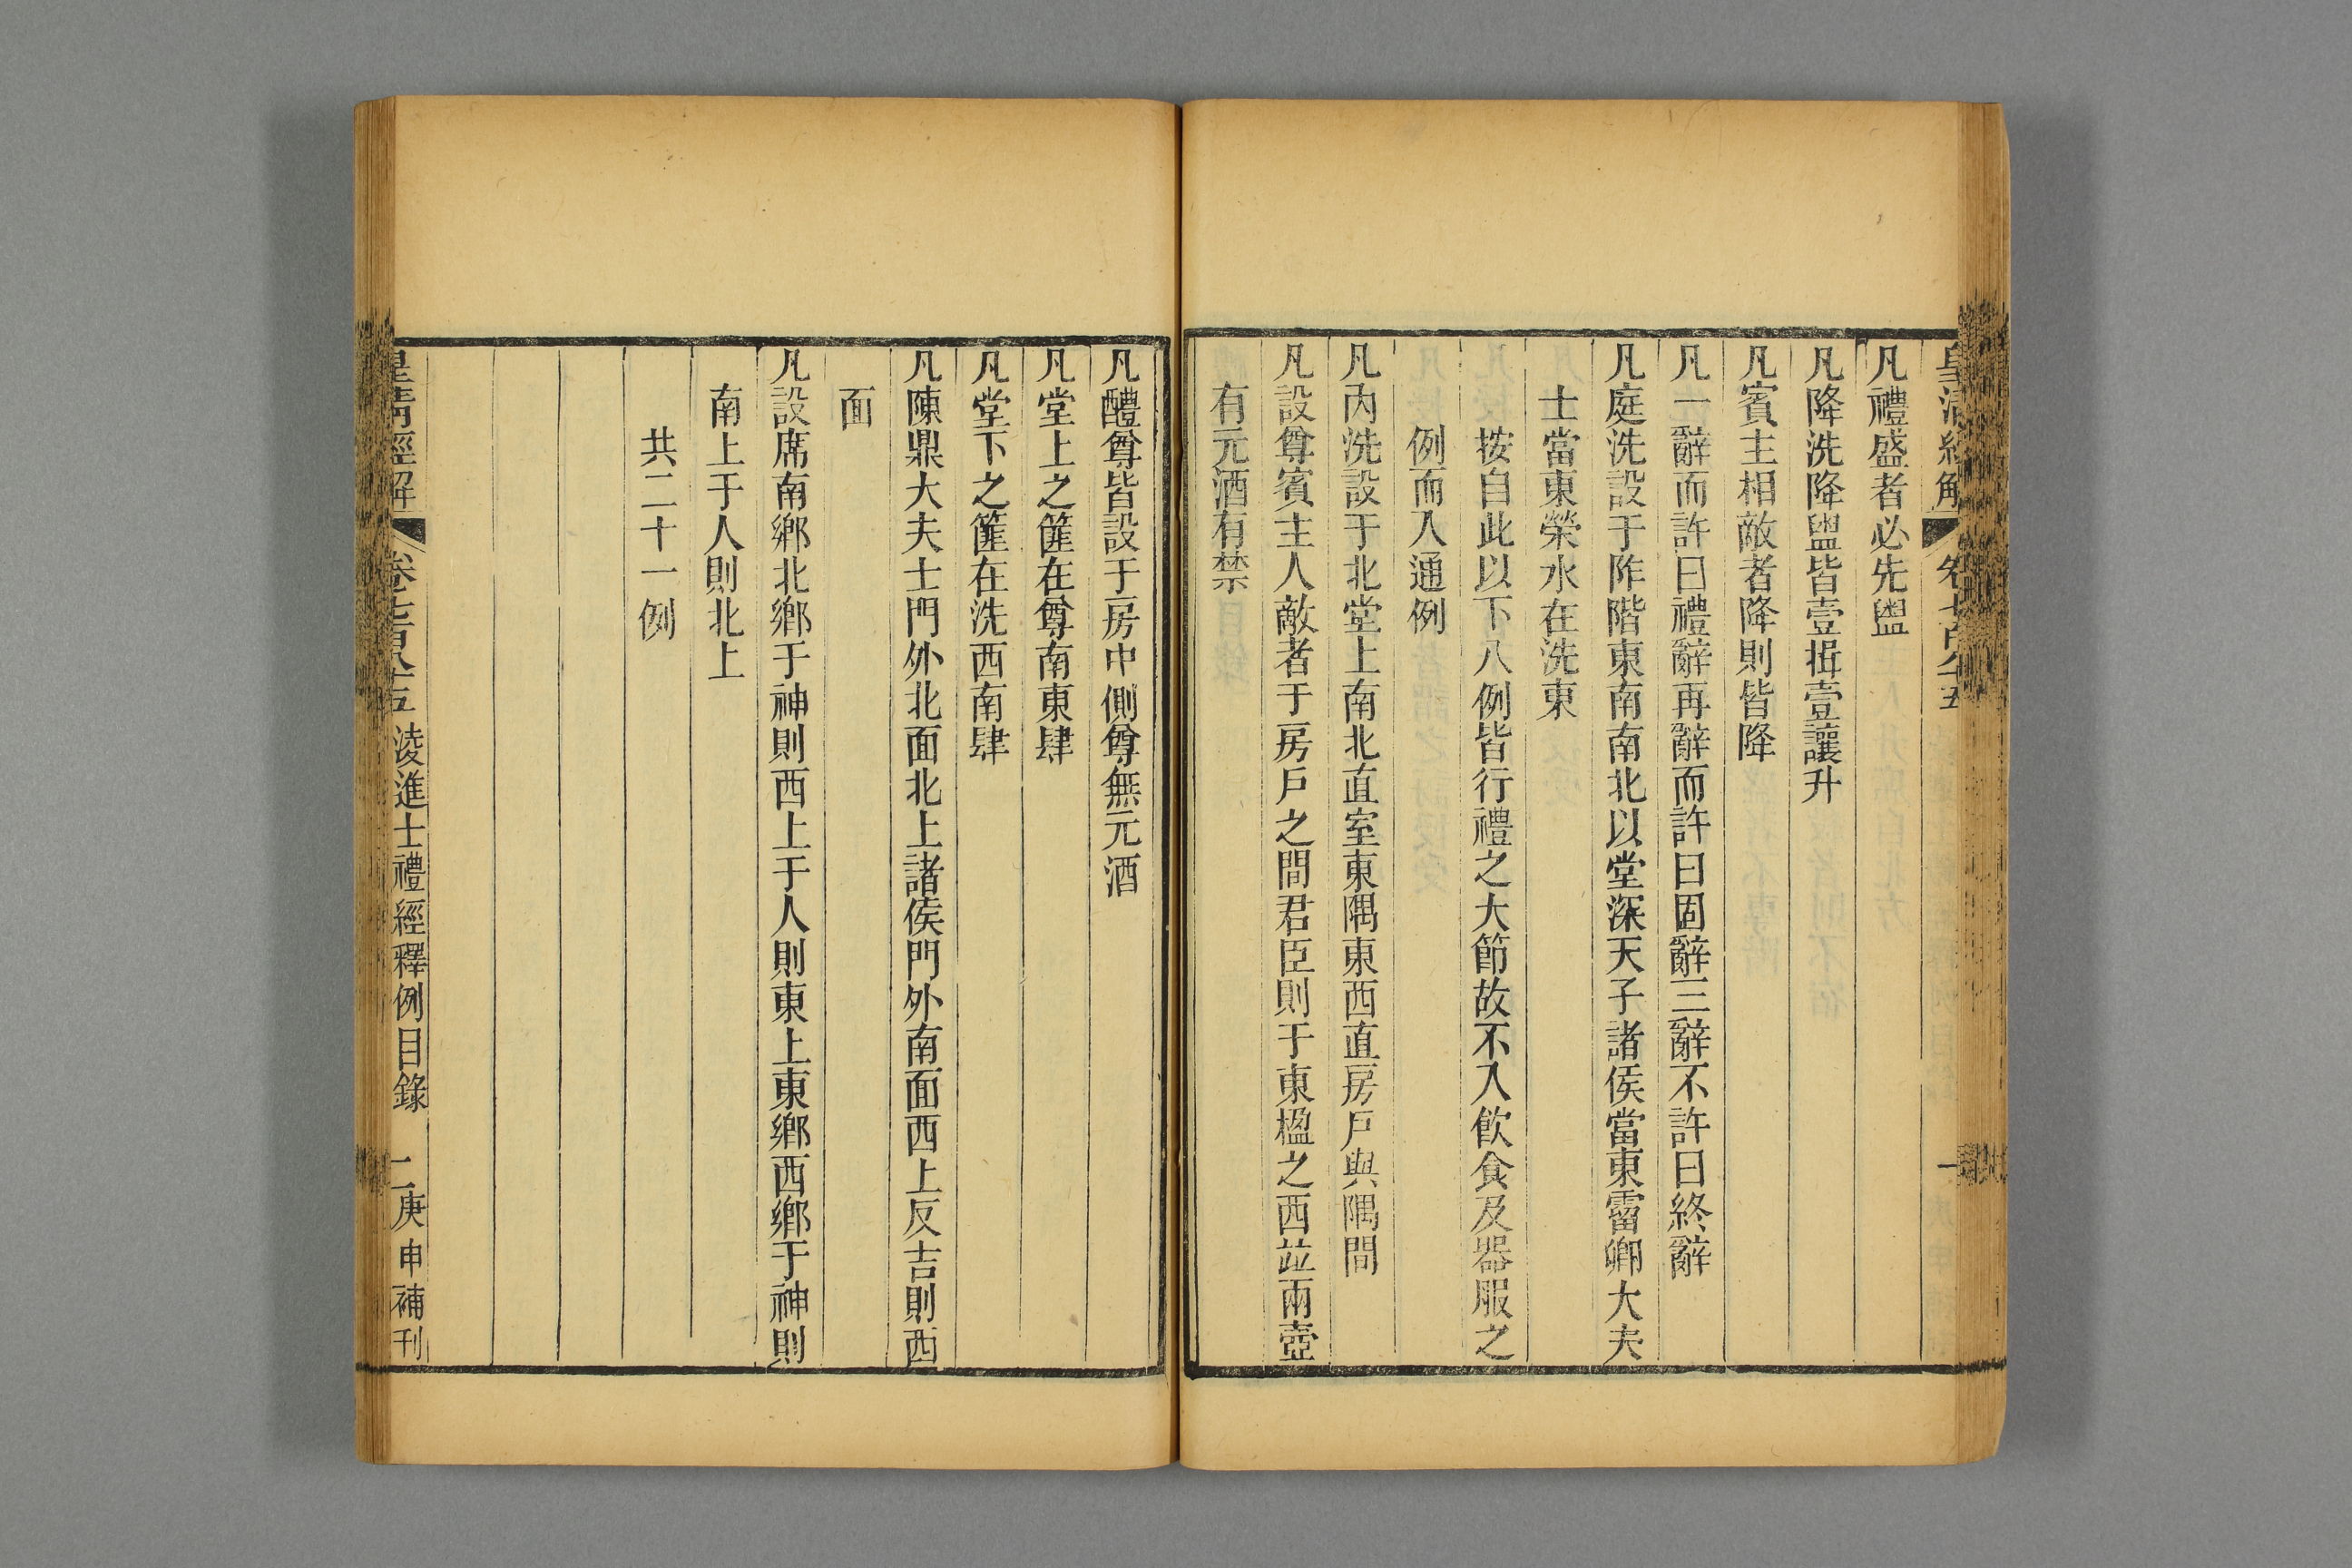 皇清經解 卷七百八十五 一
凡禮盛者必先盥
凡降洗降盥皆壹揖壹讓升
凡賓主相敵者降則皆降
凡一辭而許曰禮辭再辭而許曰固辭三辭不許曰終辭
凡庭洗設于阼階東南南北以堂深天子諸侯當東霤卿大夫
士當東榮水在洗東
按自此以下八例皆行禮之大節故不入飮食及器服之
例而入通例
凡內洗設于北堂上南北直室東隅東西直房戶與隅間
凡設尊賓主人敵者于房戶之間君臣則于東楹之西竝兩壺
有元酒有禁
凡醴尊皆設于房中側尊無元酒
凡堂上之篚在尊南東肆
凡堂下之篚在洗西南肆
凡陳鼎大夫士門外北面北上諸侯門外南面西上反吉則西
面
凡設席南鄉北鄉于神則西上于人則東上東鄉西鄉于神則
南上于人則北上
共二十一例
皇清經解 卷七百八十五 淩進士禮經釋例目錄 二 庚申補刊